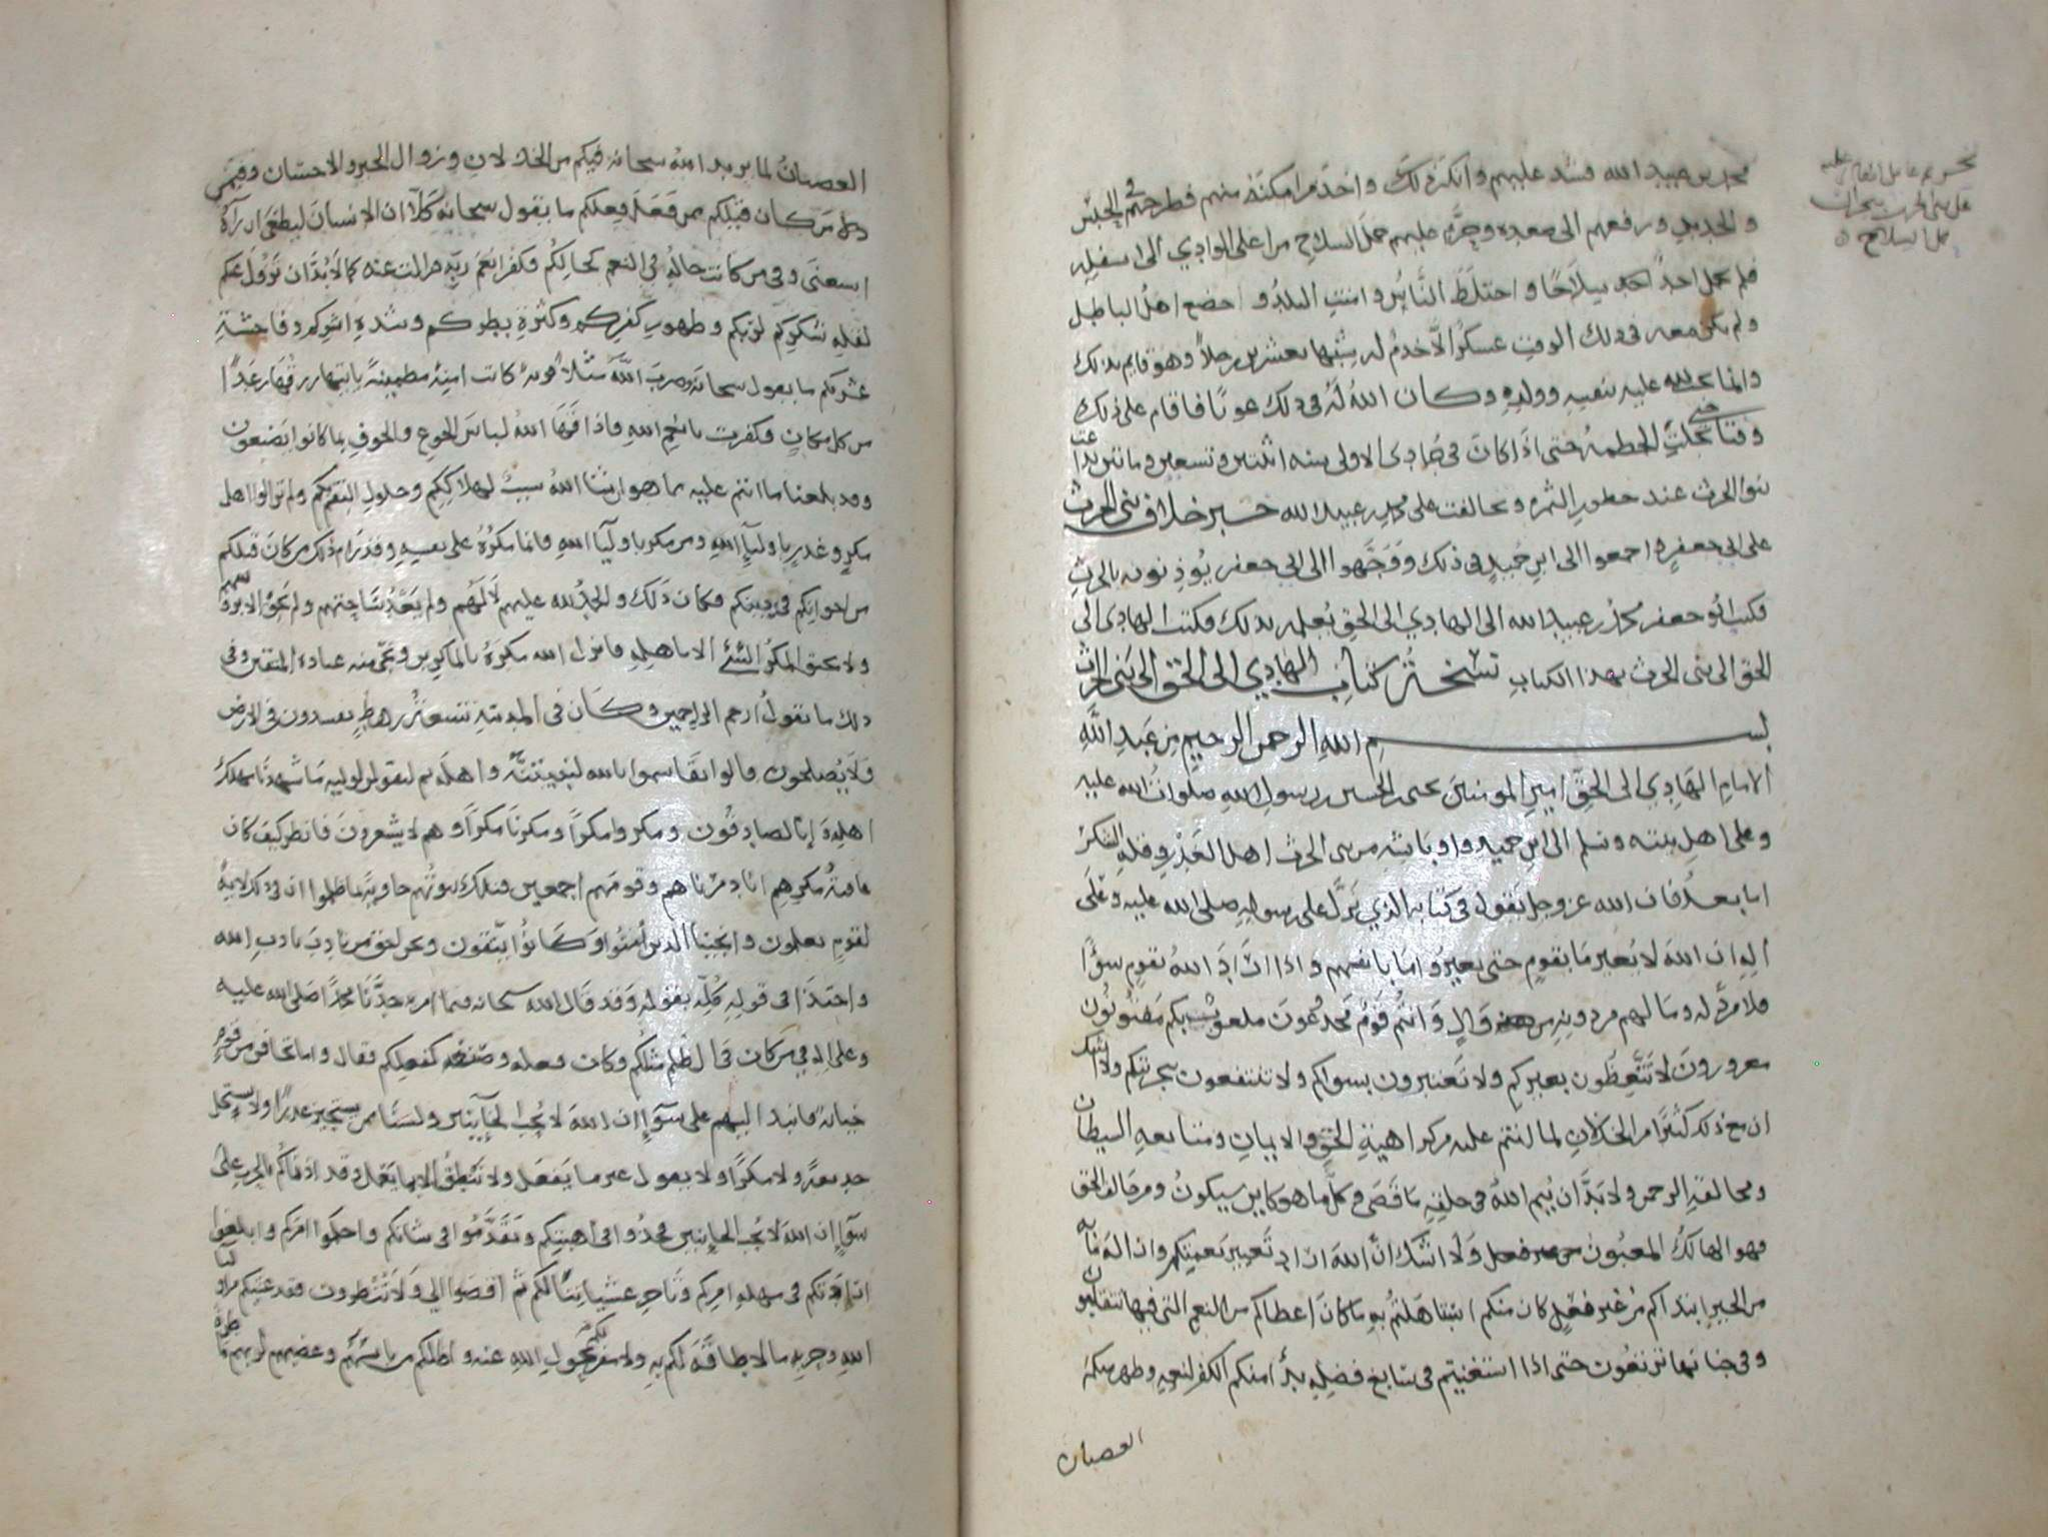 محمد بن عبيد الله فشد عليهم وانكر ذلك واخذ من امكنه منهم فطرحهم في الحبس
والحديد ورفعهم الى صعده وحرم عليهم حمل السلاح من اعلى الوادي الى اسفله
فلم يحمل احد سلاحا واختلط الناس وامنت البلد و اخضع اهل الباطل
ولم يكن معه في ذلك الوقت عسكر الا خدم له شبيها بعشرين رجلا وهو قايم بذلك
عليه بنفسه وولده وكان الله له في ذلك عونا فاقام على ذلك
حتى اذا كان في جمادى الاولى سنه اثنتين وتسعين وماتين
بنو الحرث عند حطور الثمره وتحالفت على محمد بن عبيد الله خبر خلاف بني الحرث
على ابي جعفر واجمعوا الى ابن حميد في ذلك ووجهوا الى ابي جعفر يوذنونه بالحرب
فكتب ابو جعفر محمد بن عبيد الله الى الهادي الى الحق يعلمه بذلك فكتب الهادي الى
الحق الى بني الحرث بهذا الكتاب نسخة كتاب الهادي الى الحق الى بني الحرث
بسم الله الرحمن الرحيم من عبد الله
الامام الهادي الى الحق امير المومنين يحيى بن الحسين بن رسول الله صلوات الله عليه
وعلى اهل بيته وسلم الى ابن حميد واوباشه من بني الحرث اهل الغدر وقله الشكر
اما بعد فان الله عز وجل يقول في كتابه الذي نزل على رسوله صلى الله عليه وعلى
اله ان الله لا يغير ما بقوم حتى يغيروا ما بانفسهم واذا اراد الله بقوم سوءا
فلا مرد له وما لهم من دونه من وال وانتم قوم مخدوعون ملعوب بكم مفتونون
مغرورون لا تتعظون بغيركم ولا تعتبرون بسواكم ولا تنتفعون بتجربتكم ولا اشك
ان مع ذلك كثيرا من الخذلان لما انتم عليه من كراهية الحق والايمان ومتابعه الشيطان
ومخالفة الرحمن ولا بد ان يتم الله في خلقه ما قضى وكل ما هو كاين سيكون ومن خالف الحق
فهو الهالك المغبون ولا اشك ان الله اراد تغيير نعمتكم وازالة ما به
من الخير ابتداكم من غير فعل كان منكم استاهلتم به ما كان اعطاكم من النعم التي فيها تتقلبون
وفي جنانها ترتعون حتى اذا استغنيتم في سابغ فضله بدا منكم الكفر لنعمه وظهر منكم
العصيان
العصيان لما يريد الله سبحانه فيكم من الخذلان وزوال الخير والاحسان وفيمن
كان قبلكم ممن فعل فعلكم ما يقول سبحانه كلا ان الانسان ليطغى ان رآه
استغنى وفي من كانت حاله في النعم كحالكم وكفر انعم ربه فزالت عنه كما لا بد ان تزول عنكم
لقله شكركم لربكم وظهور كفركم وكثرة بطركم وشدة اشركم وفاحشة
ما يقول سبحانه وضرب الله مثلا قرية كانت امنة مطمينة ياتيها رزقها رغدا
من كل مكان فكفرت بانعم الله فاذاقها الله لباس الجوع والخوف بما كانوا يصنعون
وقد بلغنا ما انتم عليه مما هو ان شا الله سبب لهلاككم وحلول النقم بكم ولم تزالوا اهل
مكر وغدر باوليآ الله ومن مكر باوليآ الله فانما مكره على نفسه وقد رام ذلك من كان قبلكم
من اخوانكم في دينكم فكان ذلك والحمد لله عليهم لا لهم ولم يعد ساحتهم ولم يحق الا بهم
ولا يحيق المكر السئ الا باهله فانزل الله مكره بالماكرين ونجى منه عباده المتقين وفي
ذلك ما يقول ارحم الراحمين وكان في المدينة تسعة رهط يفسدون في الارض
ولا يصلحون قالوا تقاسموا بالله لنبيتنه واهله ثم لنقولن لوليه ما شهدنا مهلك
اهله وانا لصادقون ومكروا مكرا ومكرنا مكرا وهم لا يشعرون فانظر كيف كان
عاقبة مكرهم انا دمرناهم وقومهم اجمعين فتلك بيوتهم خاوية بما ظلموا ان في ذلك لاية
لقوم يعلمون وانجينا الذين امنوا وكانوا يتقون ونحن احق من تادب بادب الله
واحتذا في قوله كله بقوله وقد قال الله سبحانه فيما امر به جدنا محمدا صلى الله عليه
وعلى اله في من كان في الظلم مثلكم وكان فعله وصنعه كفعلكم فقال واما تخافن من قوم
خيانة فانبذ اليهم على سوآ ان الله لا يحب الخآينين ولسنا ممن يستجيز غدرا ولا يستحل
خديعة ولا مكرا ولا يقول غير ما يفعل ولا ينطق الا بما يعقل وقد اذناكم بالحرب على
سوآ ان الله لا يحب الخاينين فخذوا في اهبتكم وتقدموا في شانكم واحكموا امركم وابلغوا
في مهله امركم ثم اقضوا الي ولا تنظرون
الله وحربه ما لا طاقة لكم به